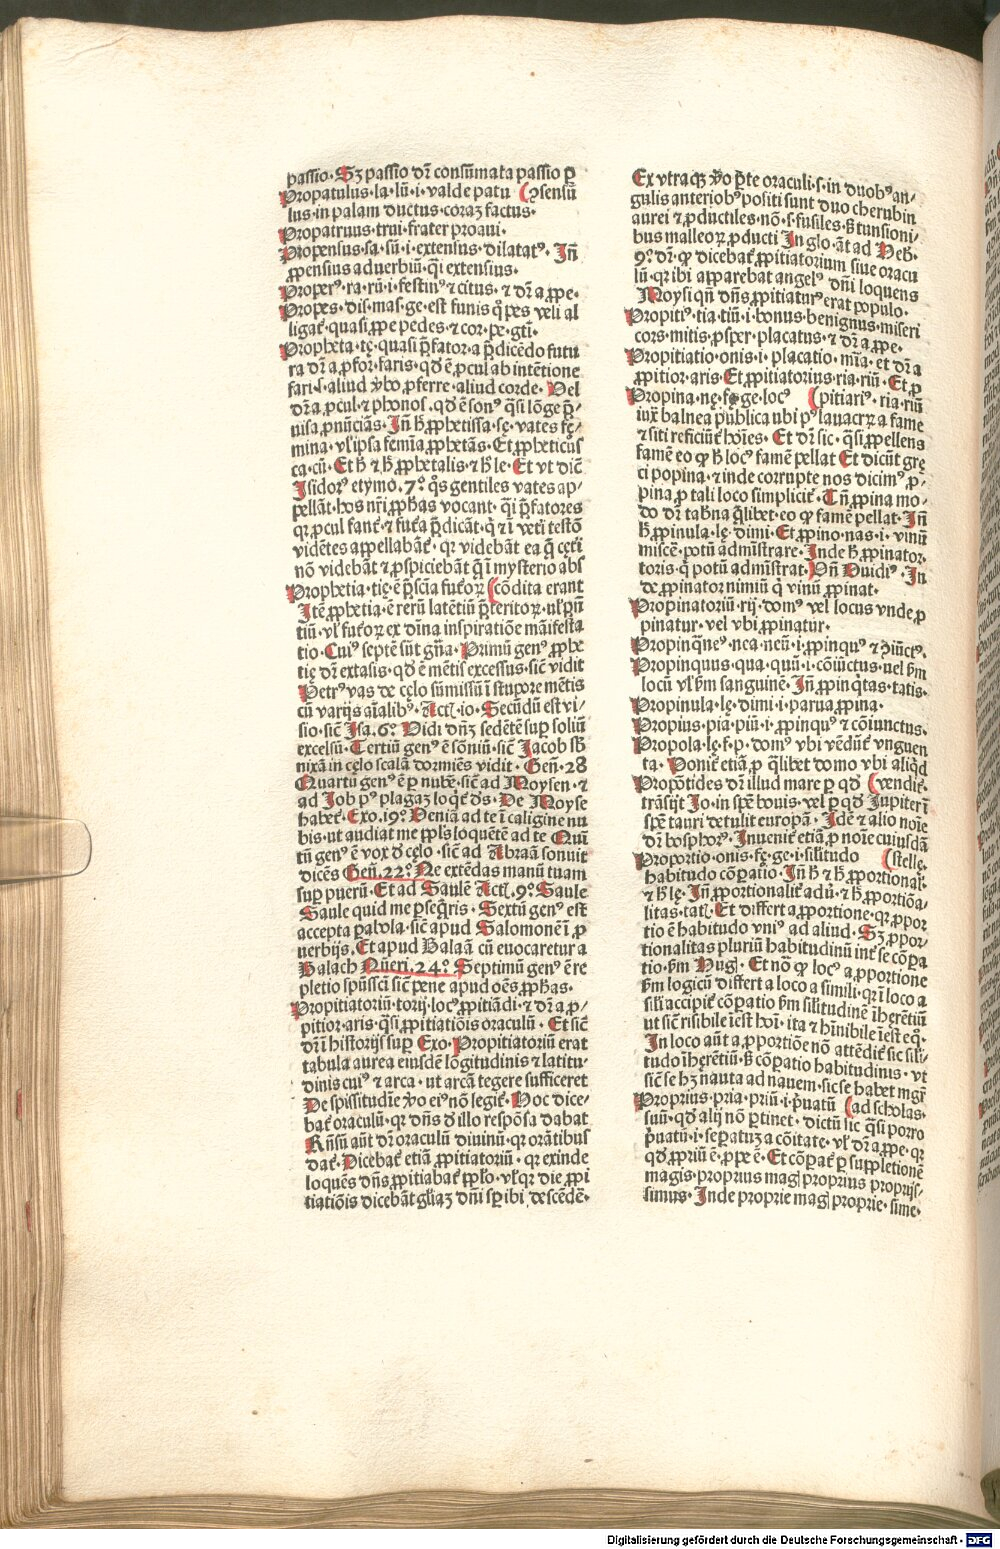 passio. Sȝ passio dr̄ consūmata passio ꝑ
Propatulus.la.lū.i.valde patu (ↄsensū
lus.in palam ductus.coraȝ factus.
Propatruus.trui.frater proaui.
Propensus.sa.sū.i.extensus.dilatatꝰ. Jn̄
ꝓpensius aduerbiū.q̄i extensius.
Properꝰ.ra.rū.i.festinꝰ ⁊ citus.⁊ dr̄ a ꝓpe.
Propes.dis.mas.ge.est funis q̊ pes veli al
ligat̄.quasi ꝓpe pedes.⁊ cor.pe.gtī.
Propheta.tę.quasi p̄fator.a p̄dicēdo futu
ra dr̄ a ꝓfor.faris.qd̄ ē ꝓcul ab intētione
fari.ſ.aliud v̄bo ꝓferre.aliud corde. Vel
dr̄ a ꝓcul.⁊ phonos.qd̄ ē sonꝰ q̄si lōge p̄-
uisa ꝓnūciās. Jn̄ h̄ ꝓphetissa.sę.vates fę-
mina.vl̓ ipsa femīa ꝓphetās. Et ꝓpheticus
ca.cū. Et h̄ ⁊ h̄ ꝓphetalis.⁊ h̄ le. Et vt dic̄
Jsidorꝰ etymo.7.° q̄s gentiles vates ap-
pellāt.hos nr̄i ꝓph̄as vocant.q̄i p̄fatores
qꝛ ꝓcul fant̄.⁊ fut̄a p̄dicāt.q̇ ⁊ ī vet̓i testō
vidētes appellabāt̄.qꝛ videbāt ea q̄ cęt̓i
nō videbāt ⁊ ꝓspiciebāt q̄ ī mysterio abs
Prophetia.tię.ē p̄scīa fut̓oꝝ (cōdita erant
Jtē ꝓphetia.ē rerū latētiū p̄teritoꝝ.vl̓ p̄n̄
tiū.vl̓ fut̓oꝝ ex dīna inspiratiōe māifesta
tio. Cuiꝰ septē sūt gn̄a. Primū genꝰ ꝓphe
tię dr̄ extasis.qd̄ ē mētis excessus.sic̄ vidit
Petrꝰ vas de cęlo sūmissū ī stupore mētis
cū varijs aīalibꝰ. Act.10. Secūdū est vi-
sio.sic̄ Jsa.6.° Vidi dn̄ȝ sedētē suꝑ soliū
excelsū. Tertiū genꝰ ē sōniū.sic̄ Jacob sb̄
nixā in cęlo scalā dormiēs vidit. Gen̄.28
Quartū genꝰ ē ꝑ nubē.sic̄ ad Moysen.⁊
ad Job pꝰ plagaȝ loq̇t̄ dꝰ. De Moyse
habet̄. Exo.19.° Veniā ad te ī caligine nu
bis.ut audiat me ppl̓s loquētē ad te Quī
tū genꝰ ē vox d̓ cęlo.sic̄ ad Abraā sonuit
dicēs Gen̄.22.° Ne extēdas manū tuam
suꝑ puerū. Et ad Saulē Act.9.° Saule
Saule quid me ꝑseq̄ris. Sextū genꝰ est
accepta ꝑabola.sic̄ apud Salomonē ī ꝓ
uerbijs. Et apud Balaā cū euocaretur a
Balach Nūeri.24.° Septimū genꝰ ē re
pletio spūsscī sic̄ pene apud oēs ꝓph̄as.
Propitiatoriū.torij.locꝰ ꝓpitiādi.⁊ dr̄ a ꝓ-
pitior.aris.q̄si ꝓpitiatiōis oraculū. Et sic̄
dr̄ ī historijs suꝑ Exo. Propitiatoriū erat
tabula aurea eiusdē lōgitudinis ⁊ latitu-
dinis cuiꝰ ⁊ arca.ut arcā tegere sufficeret
De spissitudīe v̄o eiꝰ nō legit̄. Hoc dice-
bat̄ oraculū.qꝛ dn̄s d̓ illo respōsa dabat
Rn̄sū aūt dr̄ oraculū diuinū.qꝛ orātibus
dat̄. Dicebat̄ etiā ꝓpitiatoriū.qꝛ exinde
loquēs dn̄s ꝓpitiabat̄ ppl̓o.vl̓ qꝛ die ꝓpi
tiatiōis dicebāt gl̓iaȝ dn̄i suꝑ ibi descēdē.
Ex vtraqȝ v̄o ꝑte oraculi.s.in duobꝰ an-
gulis anteriobꝰ positi sunt duo cherubin
aurei ⁊ ꝓductiles.nō.s.fusiles.s̄ tunsioni-
bus malleoꝝ ꝓducti Jn glo.āt ad Heb̄.
9.° dr̄.ꝙ dicebat̄ ꝓpitiatorium siue oracu
lū.qꝛ ibi apparebat angelꝰ dn̄i loquens
Moysi qn̄ dn̄s ꝓpitiaturꝰ erat populo.
Propitiꝰ.tia.tiū.i.bonus.benignus.miseri
cors.mitis.ꝓsper.placatus.⁊ dr̄ a ꝓpe.
Propitiatio.onis.i.placatio.mīa.et dr̄ a
ꝓpitior.aris. Et ꝓpitiatorius.ria.riū. Et ꝓ
Propina.nę.fę.ge.locꝰ (pitiariꝰ.ria.riū
iux̄ balnea publica ubi pꝰ lauacꝝ a fame
⁊ siti reficiūt̄ hoīes. Et dr̄ sic.q̄si ꝓpellens
famē eo ꝙ h̄ locꝰ famē pellat Et dicūt grę
ci popina.⁊ inde corrupte nos dicimꝰ ꝓ-
pina ꝓ tali loco simplicit̄. Tn̄ ꝓpina mo-
do dr̄ tab̄na q̄libet.eo ꝙ famē pellat. Jn̄
h̄ ꝓpinula.lę.dimi. Et ꝓpino.nas.i.vinū
miscē.potū admīstrare. Jnde h̄ ꝓpinator.
toris.q̇ potū admīstrat. Vn̄ Ouidiꝰ. Jn
de ꝓpinator nimiū q̇ vinū ꝓpinat.
Propinatoriū.rij.domꝰ vel locus vnde ꝓ
pinatur.vel vbi ꝓpinatur.
Propinq̄neꝰ.nea.neū.i.ꝓpinquꝰ ⁊ ↄiūctꝰ.
Propinquus.qua.quū.i.cōiūctus.vel s̄m
locū vl̓ s̄m sanguinē. Jn̄ ꝓpinq̇tas.tatis.
Propinula.lę.dimi.i.parua ꝓpina.
Propius.pia.piū.i.ꝓpinquꝰ ⁊ cōiunctus.
Propola.lę.f.p.domꝰ vbi vēdūt̄ vnguen
ta. Ponit̄ etiā ꝓ q̄libet domo vbi aliq̇d
Propōtides dr̄ illud mare ꝑ qd̄ (vendit̄.
trāsijt Jo.in sp̄e bouis.vel ꝑ qd̄ Jupiter ī
sp̄e tauri detulit europā. Jdē ⁊ alio noīe
dr̄ bosphorꝰ. Jnuenit̄ etiā ꝓ noīe cuiusdā
Proportio.onis.fę.ge.i.sil̓itudo (stelle.
habitudo cōpatio. Jn̄ h̄ ⁊ h̄ ꝓportional̓.
⁊ h̄ lę. Jn̄ ꝓportionalit̄ adū.⁊ h̄ ꝓportiōa-
litas.tat. Et differt a ꝓportione.qꝛ ꝓpor
tio ē habitudo vniꝰ ad aliud. Sȝ ꝓpor-
tionalitas pluriū habitudinū int̄ se cōpa
tio.s̄m Hug. Et nō ꝙ locꝰ a ꝓportione
s̄m logicū differt a loco a simili.qꝛ ī loco a
sil̓i accipit̄ cōpatio s̄m sil̓itudinē īherētiū
ut sic̄ risibile īest hoī.ita ⁊ hīnibile īest eq̊.
Jn loco aūt a ꝓportiōe nō attēdit̄ sic sil̓i-
tudo īherētiū.s̄ cōpatio habitudinis.vt
sic̄ se hȝ nauta ad nauem.sic se habet mgr̄
Proprius.pria.priū.i.p̄uatū (ad scholas.
suū.qd̄ alij nō ꝑtinet.dictū sic q̄si porro
p̄uatū.i.sepatuȝ a cōitate.vl̓ dr̄ a ꝓpe.qꝛ
qd̄ ꝓpriū ē.ꝓpe ē. Et cōpat̄ ꝑ suppletionē
magis.proprius mag proprius proprijs-
simus. Jnde proprie mag proprie.sime.
Digitalisierung gefördert durch die Deutsche Forschungsgemeinschaft - DFG